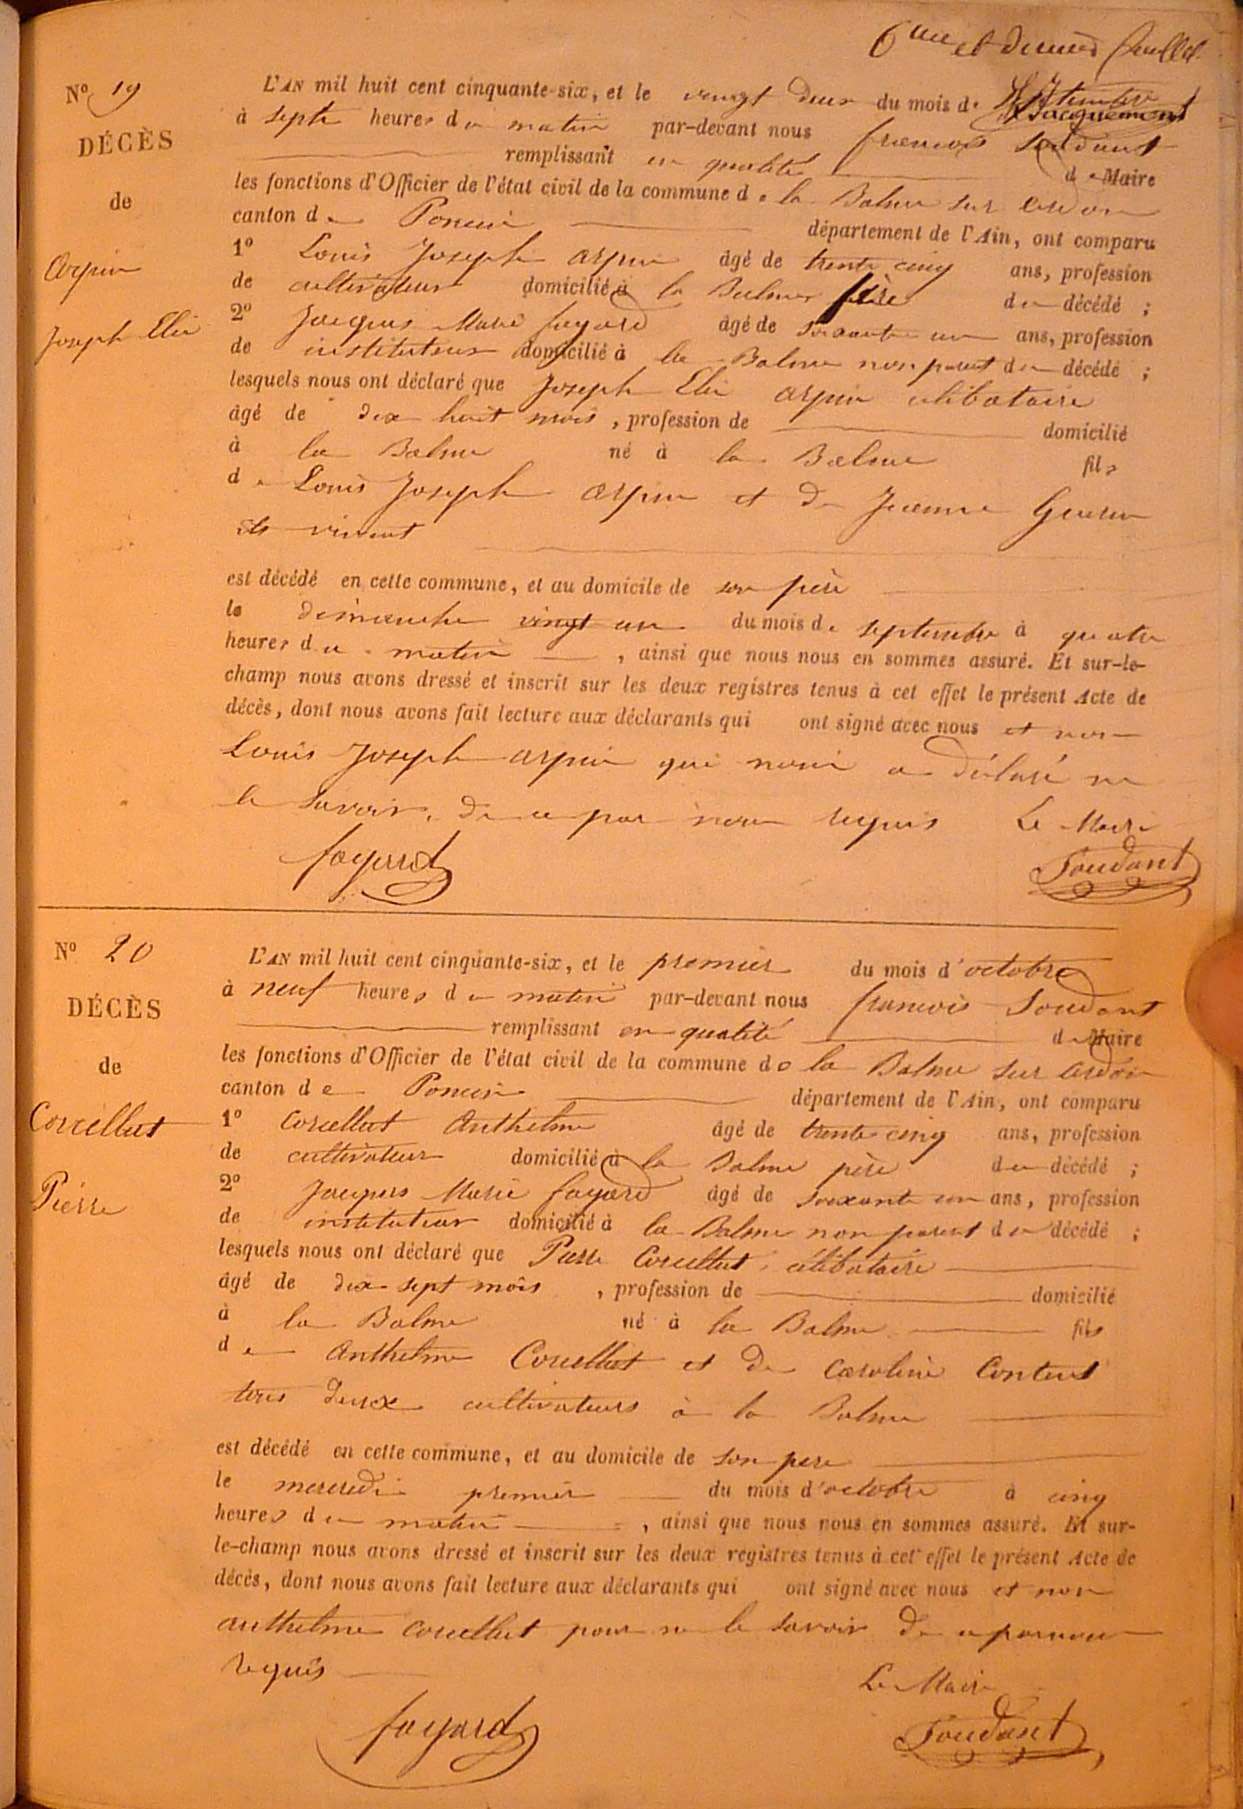 6me et dernier feuillet
H. Jacquemont
No 19
DÉCÈS
de
Arpin
Joseph Elie
L'AN mil huit cent cinquante-six, et le vingt deux du mois de Septembre
à sept heures du matin par-devant nous francois Soudant
remplissant en qualité de Maire
les fonctions d'Officier de l'état civil de la commune de la Balme sur Cerdon
canton de Poncin département de l'Ain, ont comparu
1° Louis Joseph arpin âgé de trente cinq ans, profession
de cultivateur domicilié à la Balme père du décédé ;
2° Jacques Marie fayard âgé de soixante un ans, profession
de instituteur domicilié à la Balme non parent du décédé ;
lesquels nous ont déclaré que Joseph Elie arpin célibataire
âgé de dix huit mois, profession de domicilié
à la Balme né à la Balme fils
de Louis Joseph arpin et de Jeanne
ils vivent
est décédé en cette commune, et au domicile de son père
le dimanche vingt un du mois de septembre à quatre
heures du matin, ainsi que nous nous en sommes assuré. Et sur-le-
champ nous avons dressé et inscrit sur les deux registres tenus à cet effet le présent Acte de
décès, dont nous avons fait lecture aux déclarants qui ont signé avec nous et non
Louis Joseph arpin qui nous a déclaré ne
le savoir, de ce par nous requis Le Maire
fayard Soudant
No 20
DÉCÈS
de
Corcellut
Pierre
L'AN mil huit cent cinquante-six, et le premier du mois d'octobre
à neuf heures du matin par-devant nous francois Soudant
remplissant en qualité de Maire
les fonctions d'Officier de l'état civil de la commune de la Balme sur Cerdon
canton de Poncin département de l'Ain, ont comparu
1° Corcellut Anthelme âgé de trente cinq ans, profession
de cultivateur domicilié à la Balme père du décédé ;
2° Jacques Marie fayard âgé de soixante un ans, profession
de instituteur domicilié à la Balme non parent du décédé ;
lesquels nous ont déclaré que Pierre Corcellut célibataire
âgé de dix sept mois, profession de domicilié
à la Balme né à la Balme fils
de Anthelme Corcellut et de Caroline Content
tous deux cultivateurs à la Balme
est décédé en cette commune, et au domicile de son pere
le mercredi premier du mois d'octobre à cinq
heures du matin, ainsi que nous nous en sommes assuré. Et sur-
le-champ nous avons dressé et inscrit sur les deux registres tenus à cet effet le présent Acte de
décès, dont nous avons fait lecture aux déclarants qui ont signé avec nous et non
anthelme corcellut pour ne le savoir de ce par nous
requis Le Maire
fayard Soudant